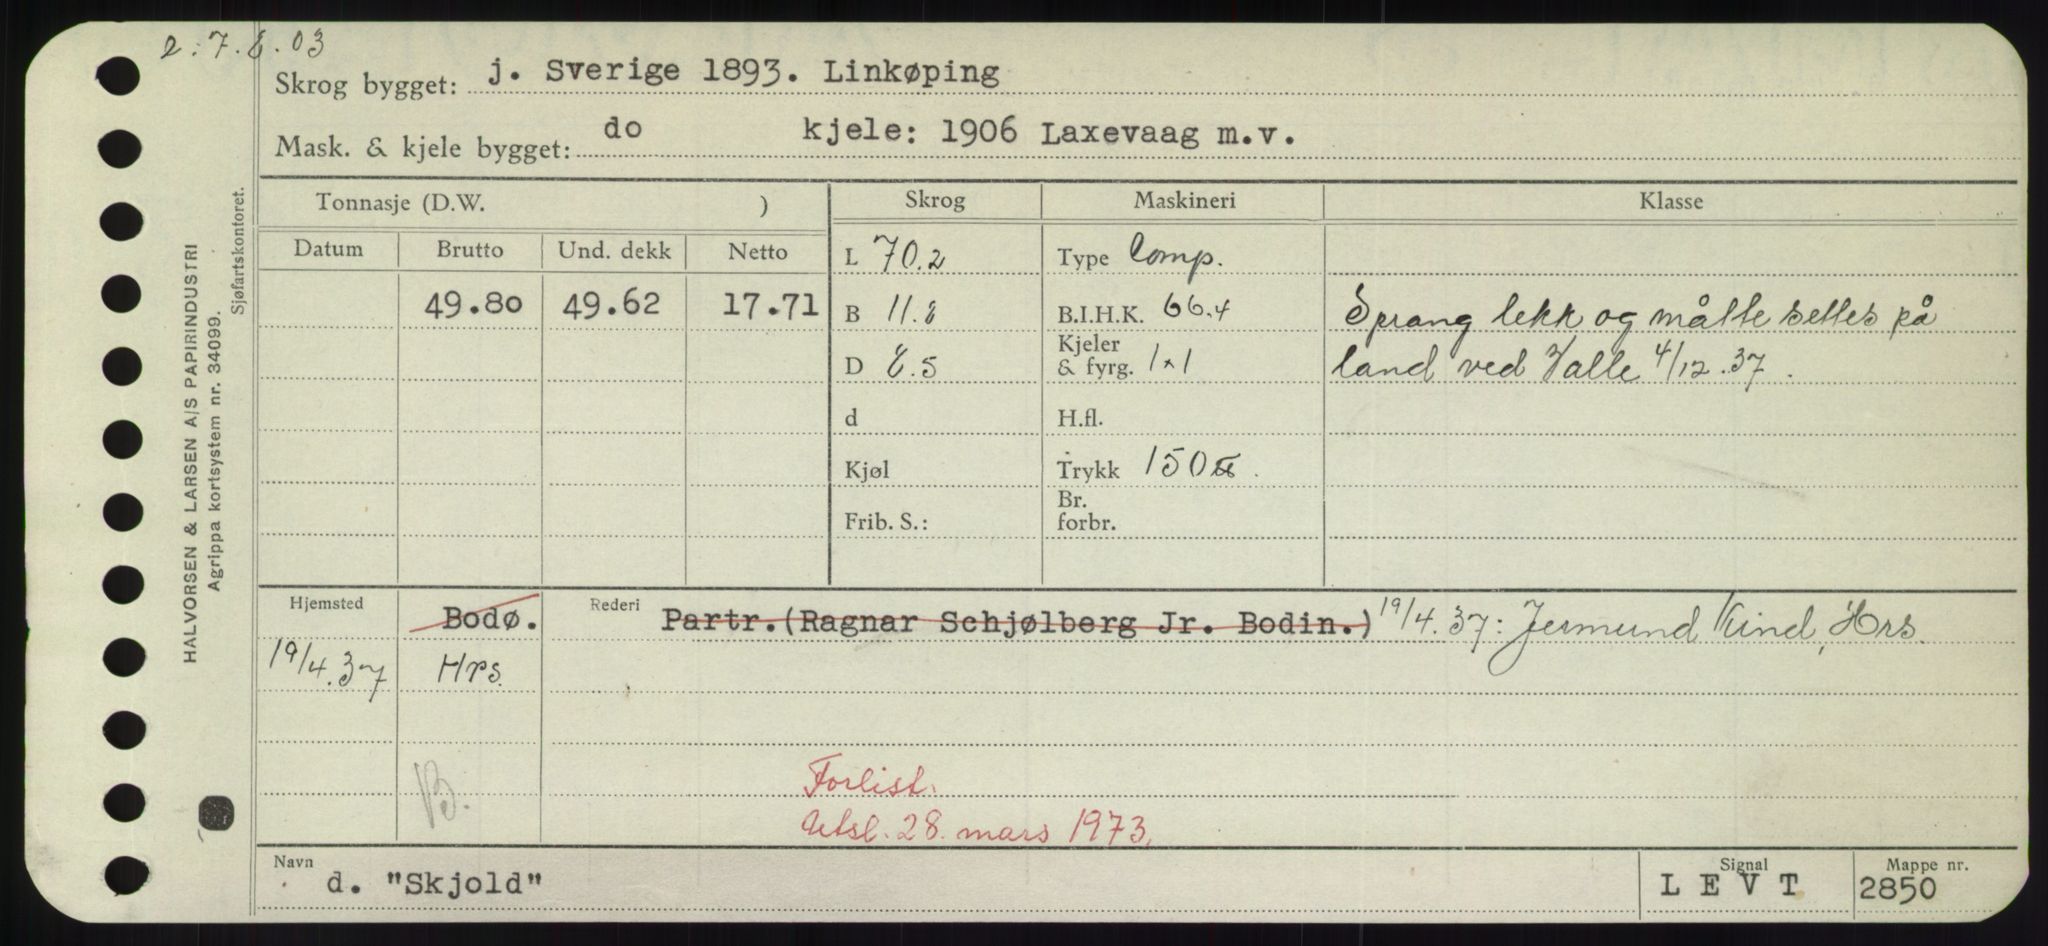 2.7.8.03
Skrog bygget: j. Sverige 1893. Linkøping
Mask. & kjele bygget: do kjele: 1906 Laxevaag m.v.
Tonnasje (D.W. ) Skrog Maskineri Klasse
Datum Brutto Und. dekk Netto L 70.2 Type Comp.
49.80 49.62 17.71 B 11.8 B.I.H.K. 66.4 Sprang lekk og måtte settes på
D 8.5 Kjeler & fyrg. 1x1 land ved Valle 4/12.37.
d H.fl.
Kjøl Trykk 150 ℔.
Frib. S.: Br. forbr.
Hjemsted Bodø. Rederi Partr.(Ragnar Schjølberg Jr. Bodin.) 19/4.37: Jermund Kind, Hrs.
19/4.37 Hrs.
B.
Forlist.
Utsl. 28. mars 1973.
Navn d. "Skjold" Signal L E V T Mappe nr. 2850
HALVORSEN & LARSEN A/S PAPIRINDUSTRI
Agrippa kortsystem nr. 34099.
Sjøfartskontoret.